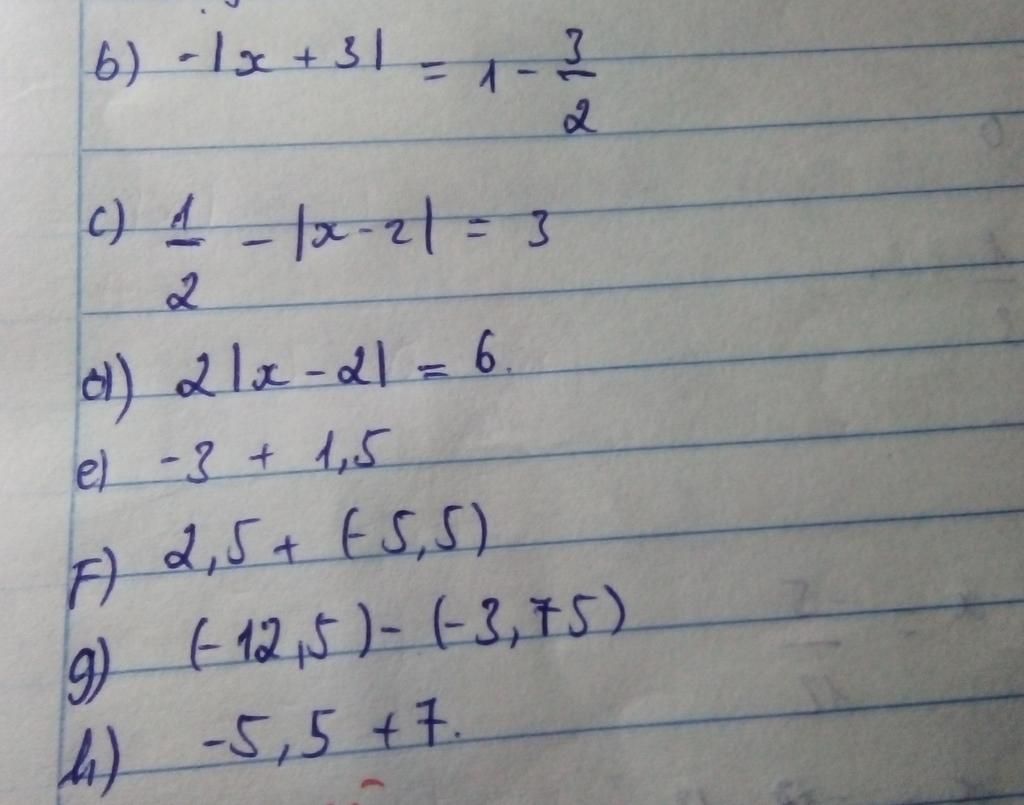 b) -|x + 3| = 1 - 3/2
c) 1/2 - |x - 2| = 3
d) 2|x - 2| = 6.
e) -3 + 1,5
F) 2,5 + (-5,5)
g) (-12,5) - (-3,75)
h) -5,5 + 7.